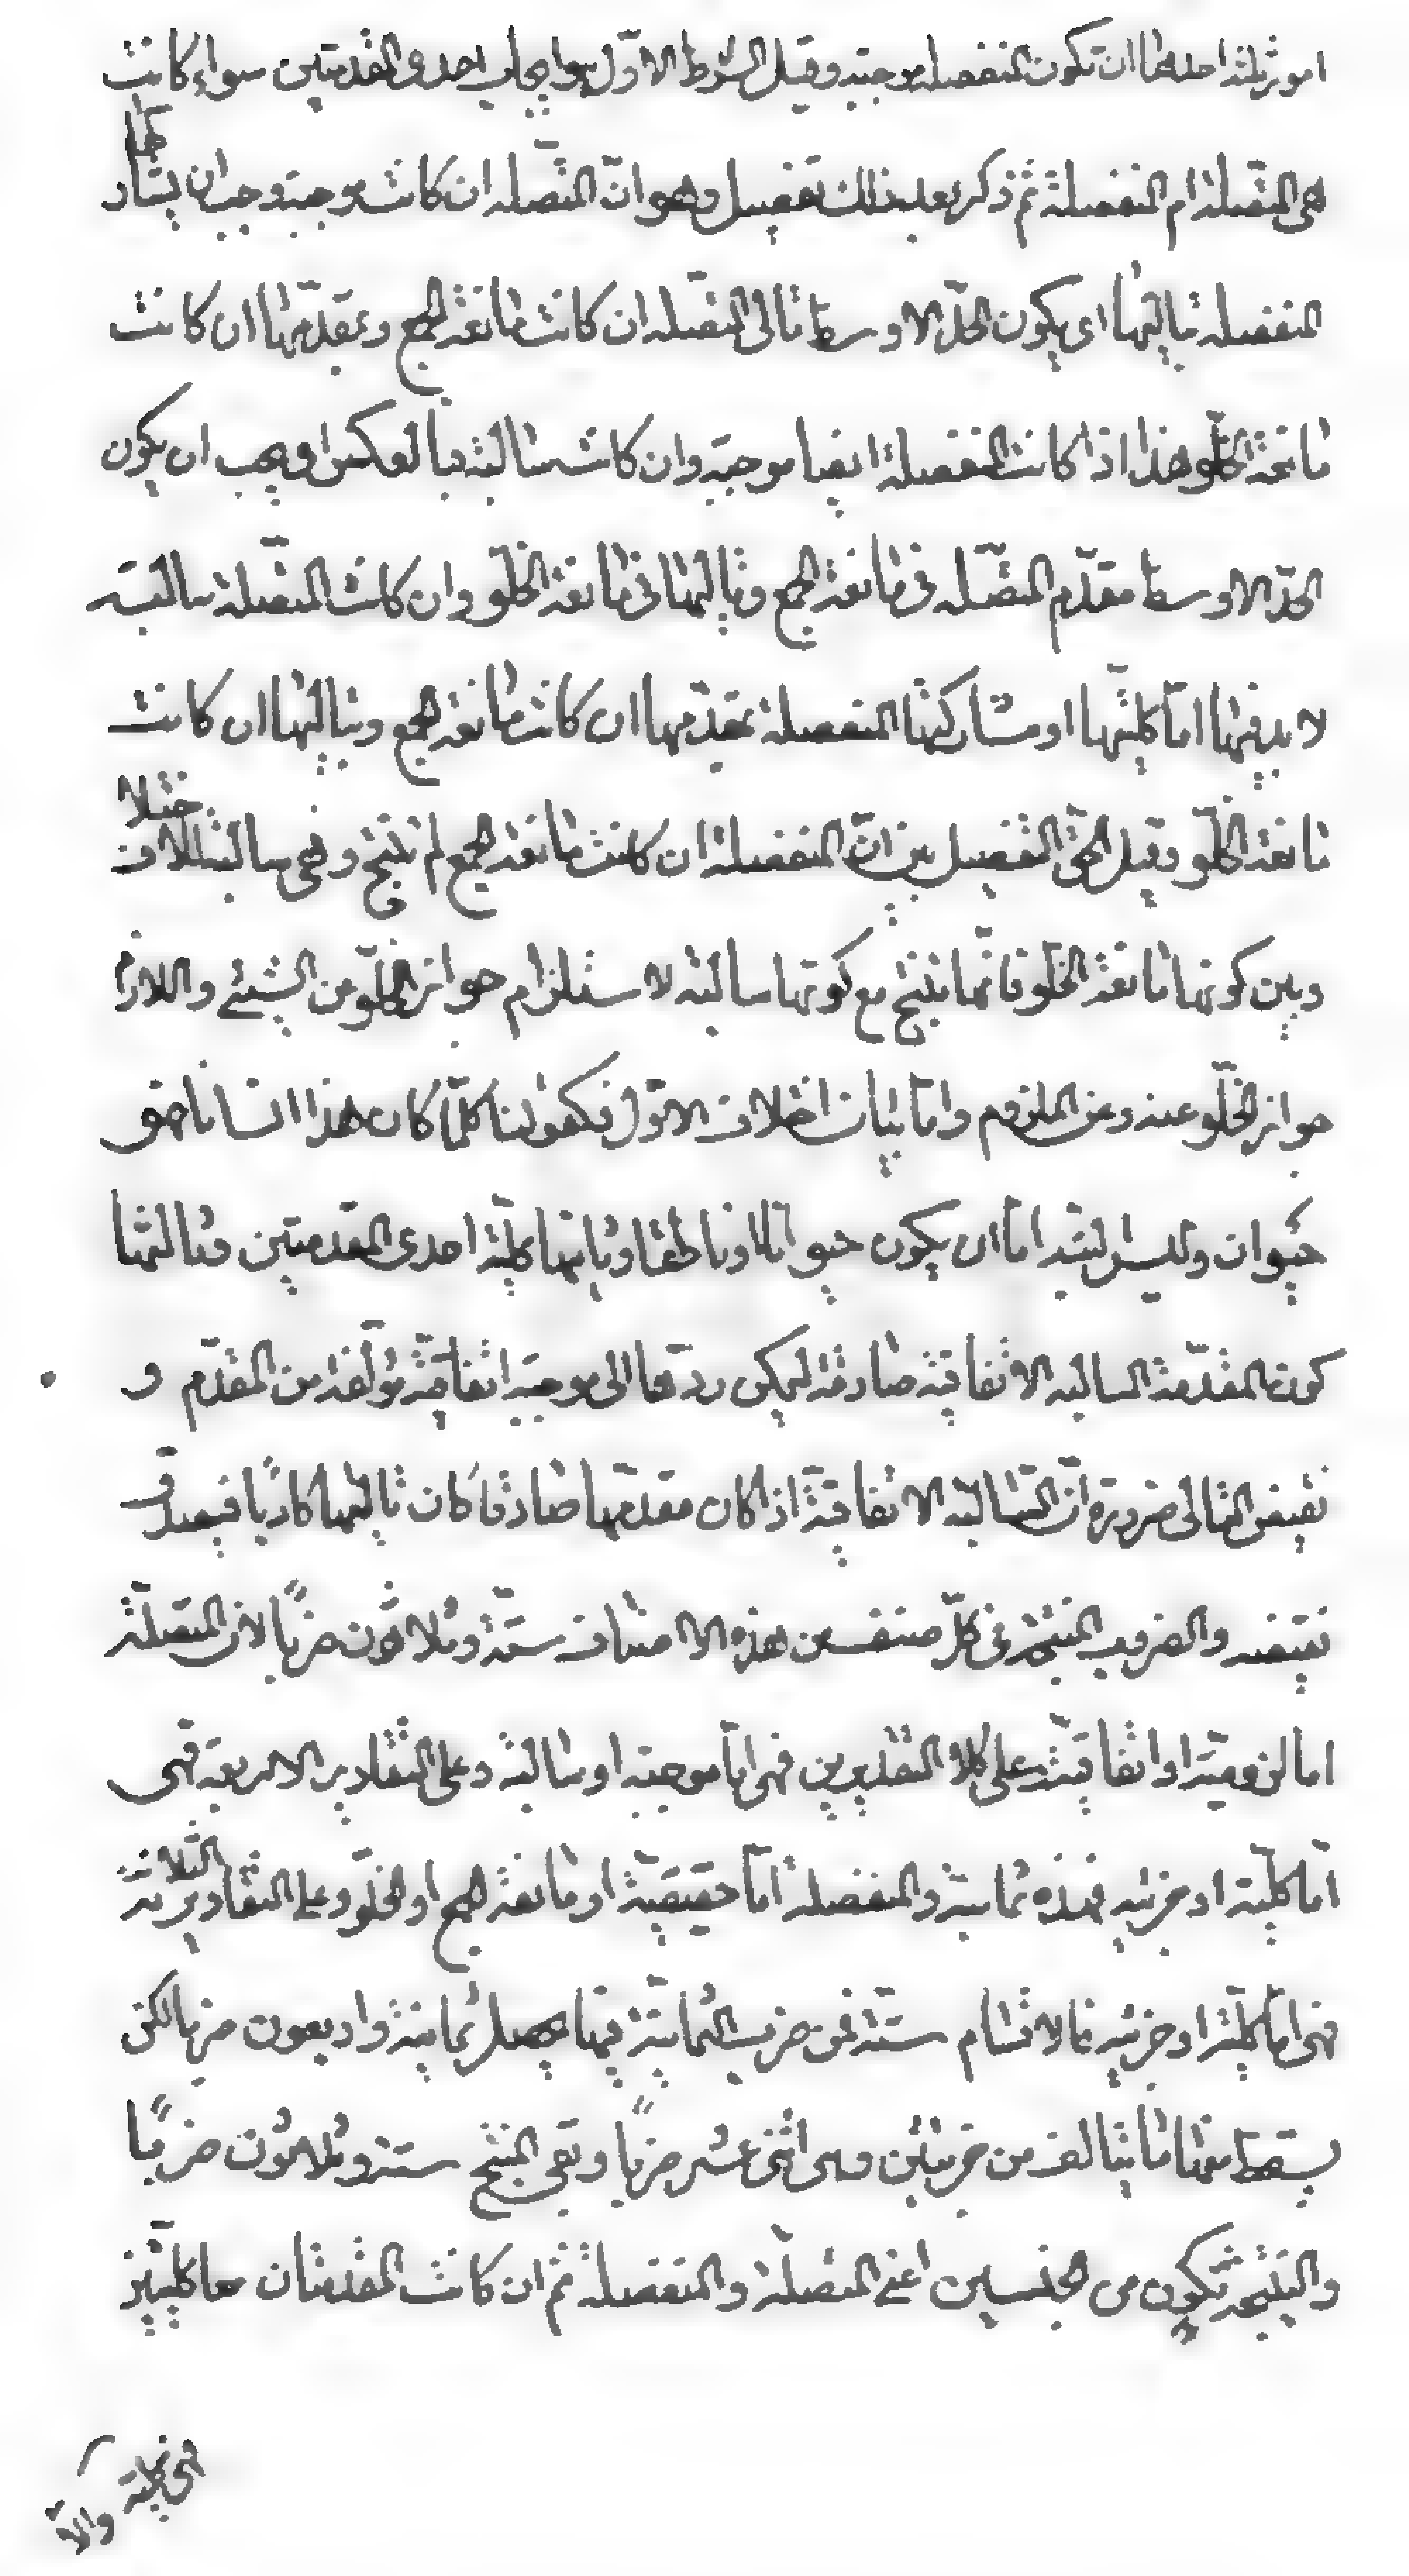 امور ثلثة احدها ان تكون المنفصلة موجبة وقيل الشرط الاوّل هو ايجاب احدى المقدمتين سواء كانت
هى المتّصلة ام المنفصلة ثم ذكر بعد ذلك تفصيل وهو انّ المتّصله ان كانت موجبة وجب ان يشاركها
المنفصله تاليها اى يكون الحدّ الاوسط تالى المتصله ان كانت مانعة الجمع ومقدّمها ان كانت
مانعة الخلّو هذا اذا كانت المنفصلة ايضا موجبة وان كانت سالبة فبالعكس اى يجب ان يكون
الحدّ الاوسط مقدّم المتّصله فى مانعة الجمع وتاليها فى مانعة الخلّو وان كانت المتّصلة سالبة
لا بد فيها امّا كليّتها او مشاركتها المنفصلة بمقدّمها ان كانت مانعة الجمع وبتاليها ان كانت
مانعة الخلّو وقيل الحقّ التفصيل بين انّ المنفصلة ان كانت مانعة الجمع لم تنتج وهى سالبة للاختلاف
وبين كونها مانعة الخلّو فانّها تنتج مع كونها سالبة لاستلزام جواز الخلّو من الشيئ واللازم
جواز الخلّو عنه وعن الملزوم وامّا بيان اختلاف الاوّل فكقولنا كلّما كان هذا انسانا فهو
حيوان وليس البتة امّا ان يكون حيوانا او ناطقا وثانيها كليّة احدى المقدمتين وثالثها
كون المقدمة السالبه الاتفاقية صادقة ليمكن ردّها الى موجبة اتفاقيّة مؤلّفة من المقدّم و
نقيض التالى ضرورة انّ السّالبة الاتفاقيّة اذا كان مقدّمها صادقا كان تاليها كاذبًا فيصدق
نقيضه والضروب المنتجة فى كلّ صنف من هذه الاصناف ستّة وثلاثون ضربًا لان المتصلّة
اما لزوميّة او اتفاقيّة وعلى كلا التقديرين فهى امّا موجبة او سالبة وعلى التقادير الاربعة فهى
امّا كليّة او جزئية فهذه ثمانية والمنفصلة امّا حقيقيّة او مانعة الجمع او الخلّو وعلى التقادير الثلاثة
فهى امّا كليّة او جزئية فالاقسام ستّة فمن ضرب الثمانيّة فيها يحصل ثمانية واربعون ضربا لكن
يسقط منها ما يتالف من جزئيتين وهى اثنى عشر ضربًا وبقى المنتج ستة وثلاثون ضربًا
والنتيجة تكون من الجنسين اعنى المتصلّة والمنفصلة ثم ان كانت المقدمتان معا كليتين
فهى كلية والّا